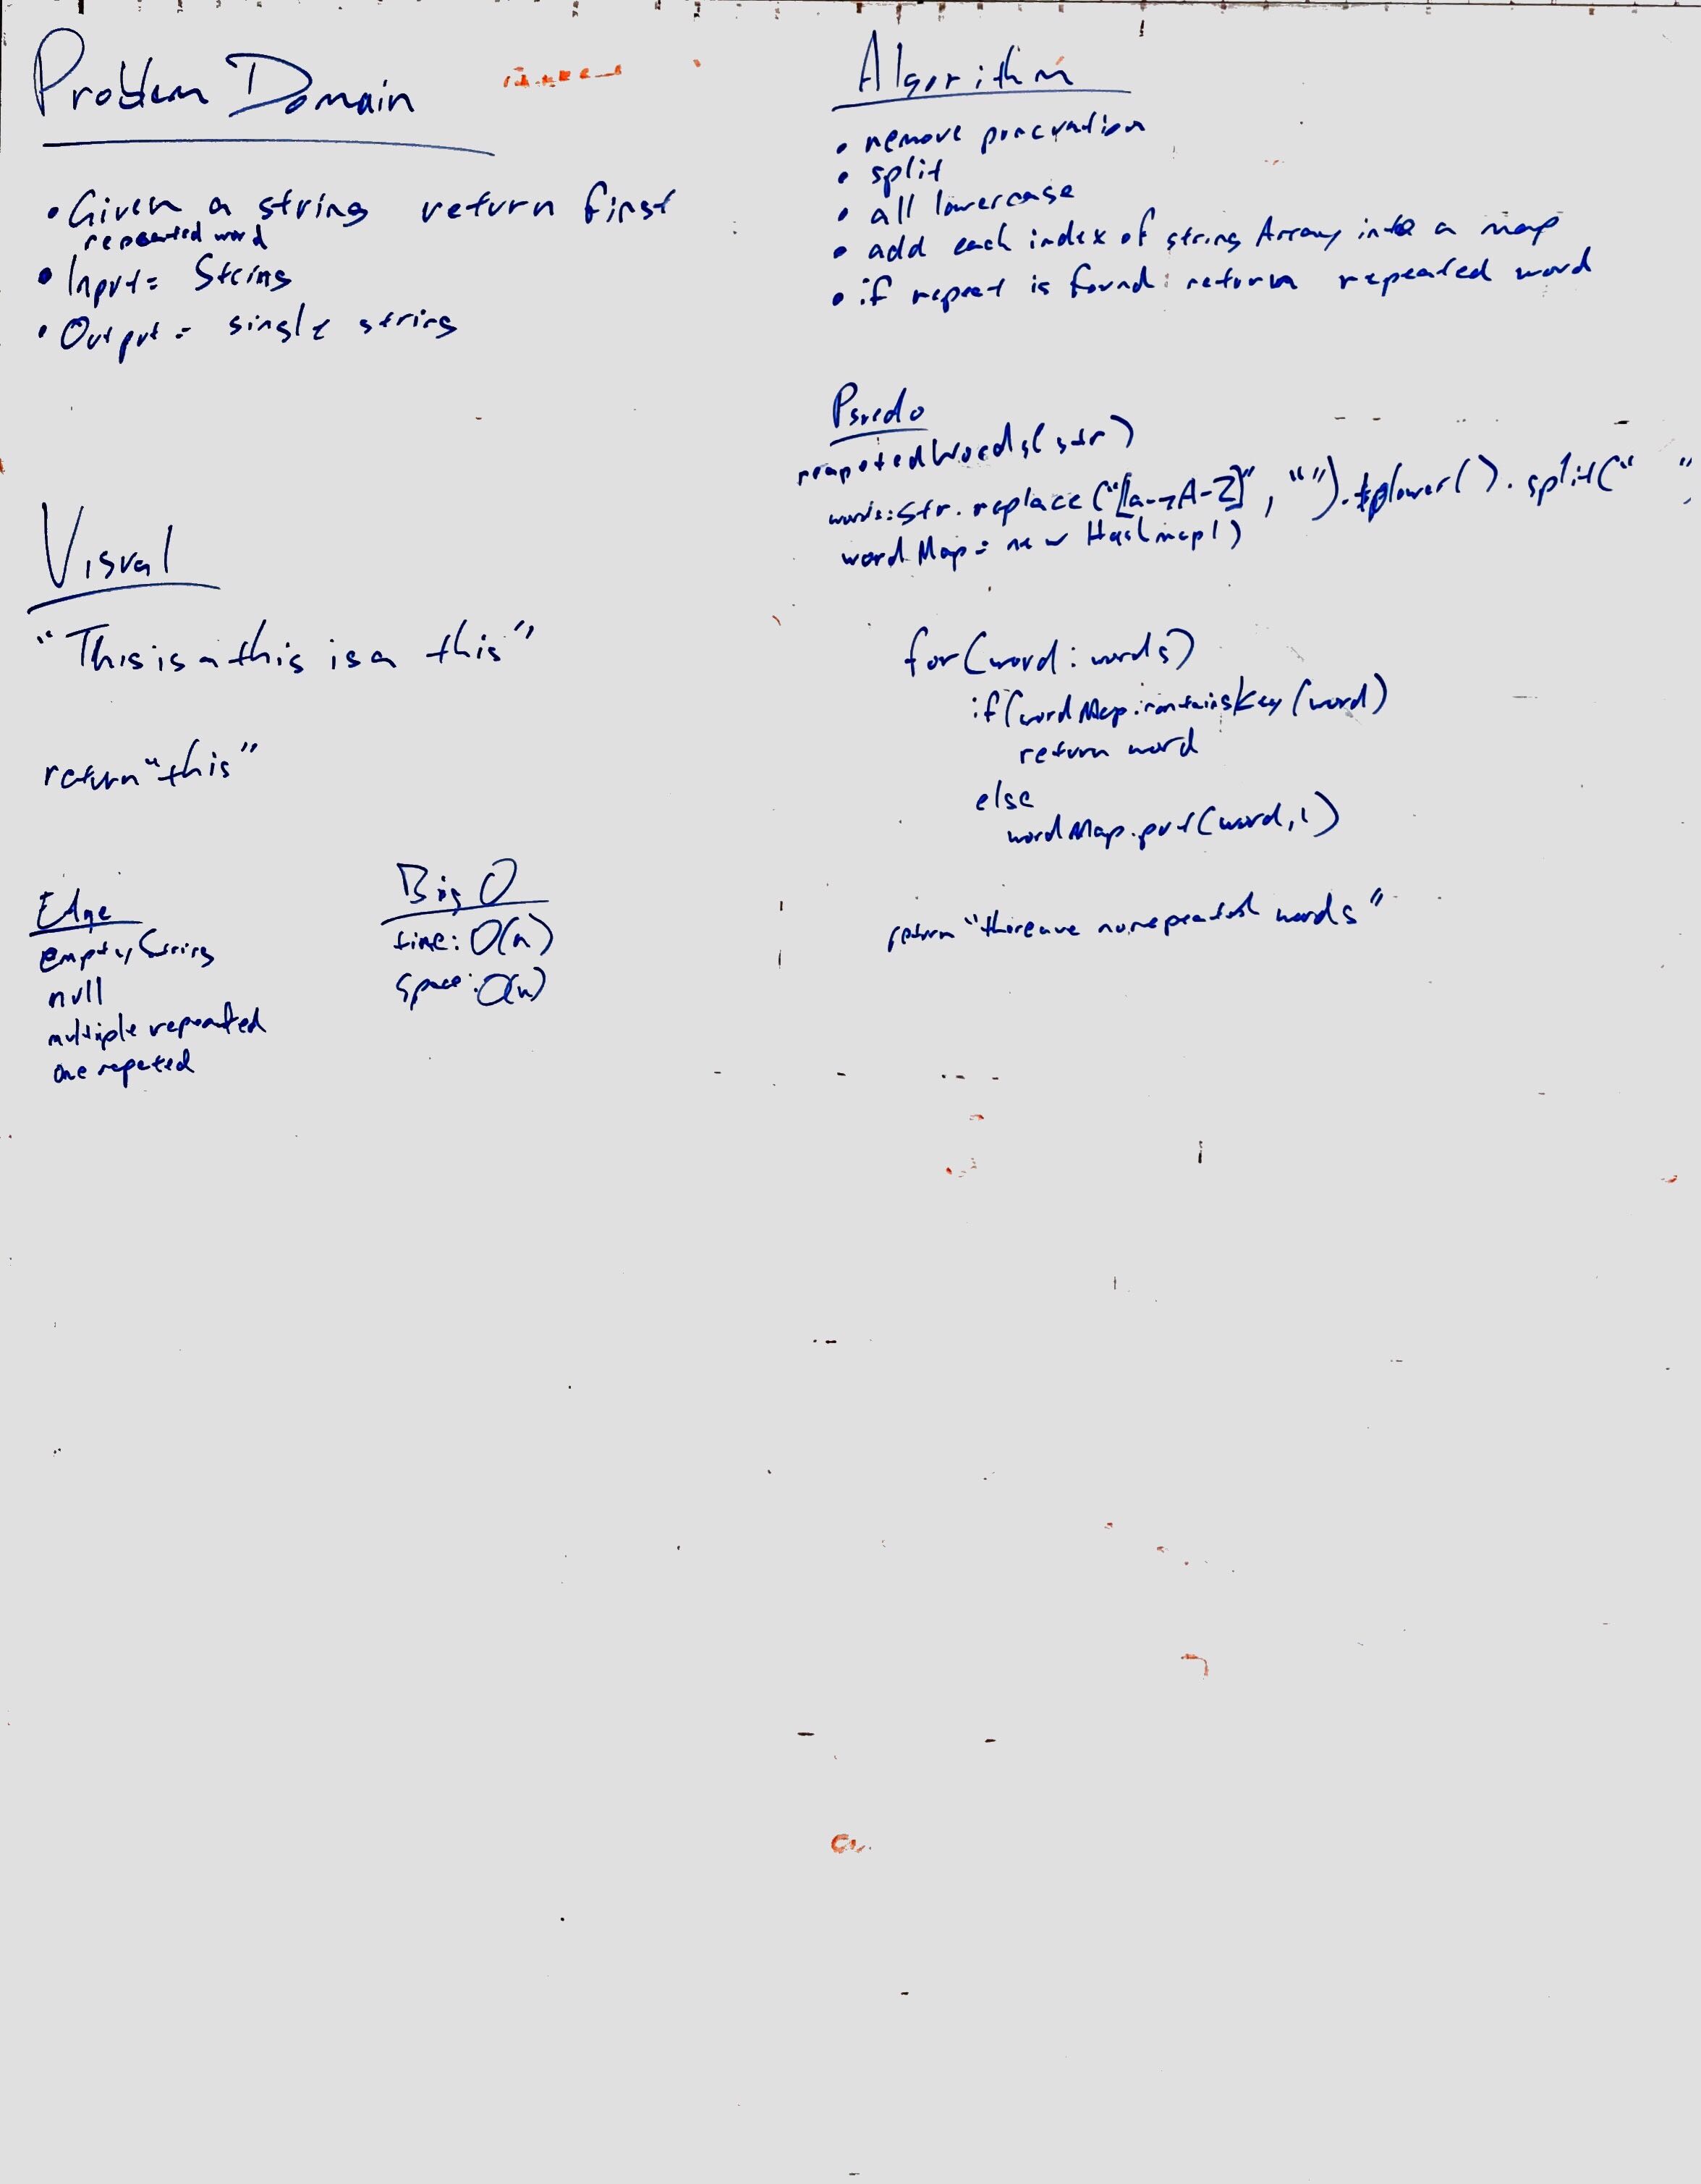 Problem Domain
• Given a string return first
repeated word
• Input = String
• Output = single string
Visual
"This is a this is a this"
return "this"
Edge
empty String
null
multiple repeated
one repeted
Big O
time: O(n)
space: O(n)
Algorithm
• remove puncuation
• split
• all lowercase
• add each index of string Array into a map
• if repeat is found return repeated word
Psuedo
reapetedWords(str)
words = str.replace("[a-zA-Z]", "").tolower().split(" "
wordMap = new Hashmap()
for(word : words)
if(wordMap.containsKey(word)
return word
else
wordMap.put(word,1)
return "there are no repeated words"